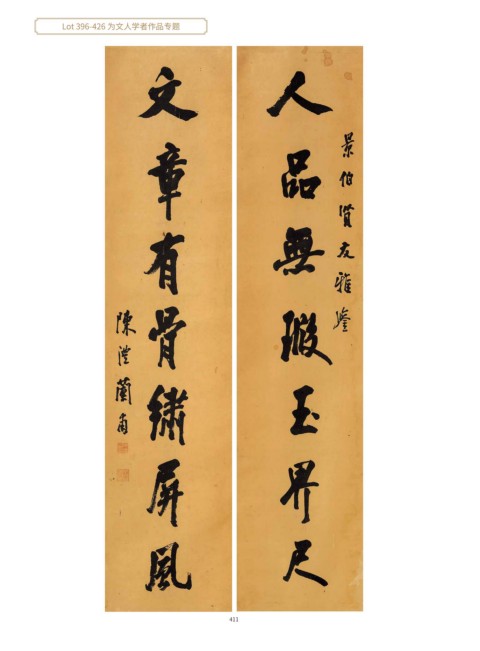 Lot 396-426 为文人学者作品专题
景伯贤友雅鉴
人品無瑕玉界尺
文章有骨繡屏風
陳澧蘭甫
411